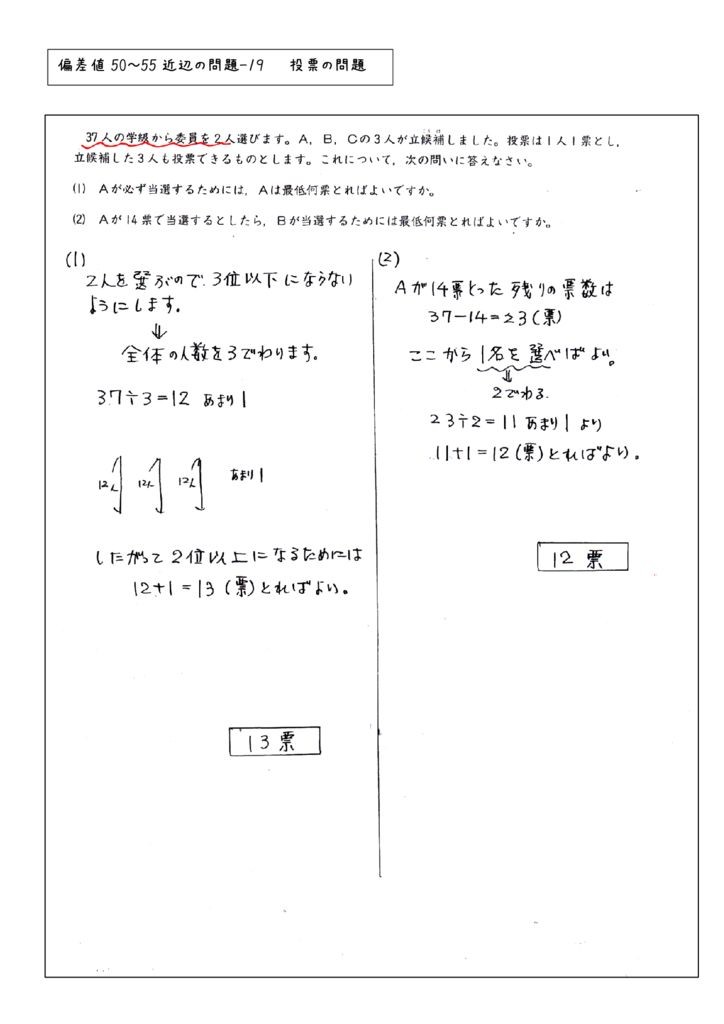 偏差値 50～55 近辺の問題-19　投票の問題
37人の学級から委員を2人選びます。A，B，Cの3人が立候補しました。投票は1人1票とし，
立候補した3人も投票できるものとします。これについて，次の問いに答えなさい。
(1) Aが必ず当選するためには，Aは最低何票とればよいですか。
(2) Aが14票で当選するとしたら，Bが当選するためには最低何票とればよいですか。
(1)
2人を選ぶので、3位以下にならない
ようにします。
⇓
全体の人数を3でわります。
37÷3=12 あまり1
12人 12人 12人 あまり1
したがって2位以上になるためには
12+1=13（票）とればよい。
13票
(2)
Aが14票とった残りの票数は
37-14=23（票）
ここから1名を選べばよい。
⇓
2でわる
23÷2=11 あまり1 より
11+1=12（票）とればよい。
12票